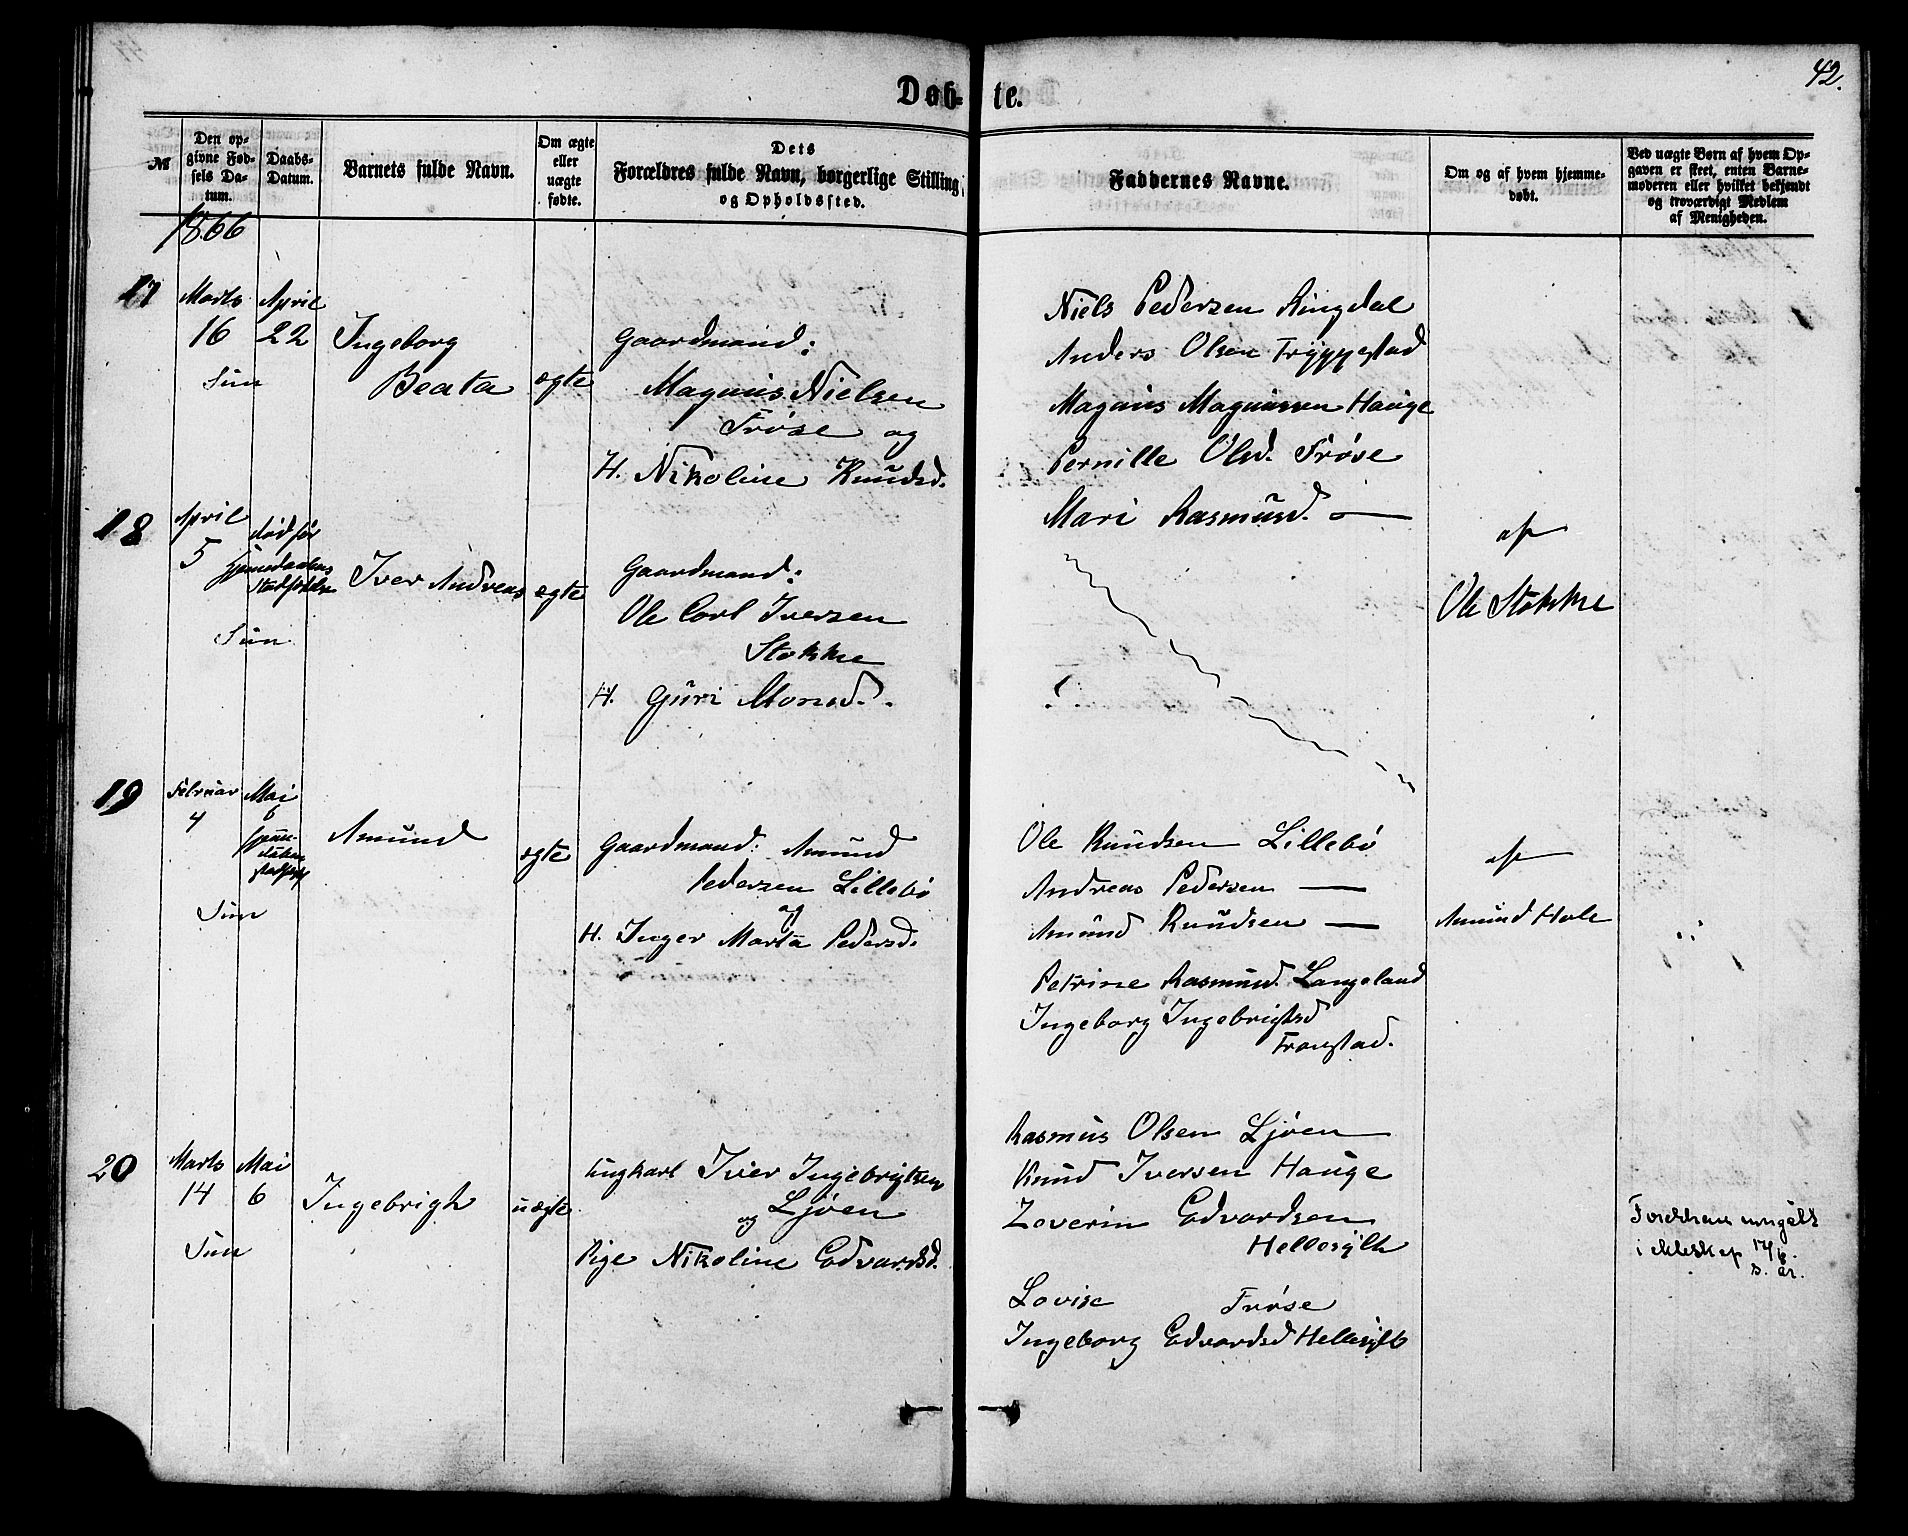 42.
Døb- te.
№
Den opgivne Fødsels Datum.
Daabs-Datum.
Barnets fulde Navn.
Om ægte eller uægte fødte.
Dets Forældres fulde Navn, borgerlige Stilling og Opholdssted.
Faddernes Navne.
Om og af hvem hjemmedøbt.
Ved uægte Børn af hvem Opgaven er skeet, enten Barnemoderen eller hvilket bekjendt og troværdigt Medlem af Menigheden.
1866
17
Marts
16
April
22
Sun
Ingeborg
Beata
ægte
Gaardmand:
Magnus Nielsen
Frøse og
H. Nikoline Knudsd.
Niels Pedersen Ringdal
Anders Olsen Tryggestad
Magnus Magnussen Hauge
Pernille Olsd. Frøse
Mari Rasmusd. —
18
April
5
død før
Hjemmedaabens
Stadfæstelse
Sun
Iver Andreas
ægte
Gaardmand:
Ole Carl Iversen
Stokke
H. Guri Monsd.
af
Ole Stokke
19
Februar
4
Mai
6
Sun
Amund
ægte
Gaardmand: Amund
Pedersen Lillebø
og
H. Inger Marta Pedersd.
Ole Knudsen Lillebø
Andreas Pedersen —
Amund Knudsen —
Petrine Rasmusd. Langeland
Ingeborg Ingebrigtsd
Tronstad.
af
Amund Hole
20
Marts
14
Mai
6
Sun
Ingebrigt
uægte
Ungkarl Iver Ingebrigtsen
og Ljøen
Pige Nikoline Edvardsd.
Rasmus Olsen Ljøen
Knud Iversen Hauge
Zeverin Edvardsen
Hellesylt
Lovise Frøse
Ingeborg Edvardsd Hellesylt
i
s. år.